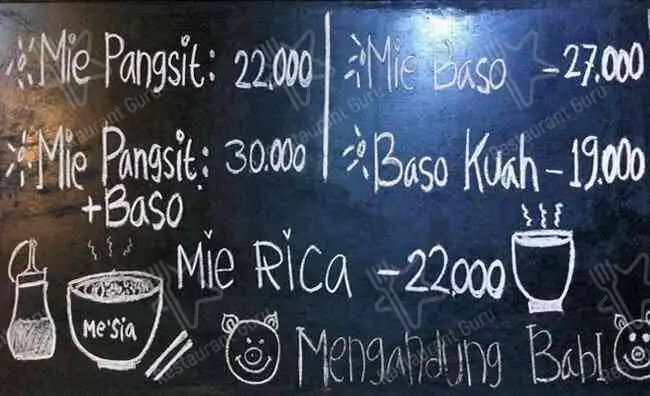 Mie Pangsit: 22,000
Mie Pangsit: 30.000
+Baso
Mie Baso - 27.000
Baso Kuah - 19.000
Mie Rica - 22,000
Me'sia
Mengandung BabI
Restaurant Guru